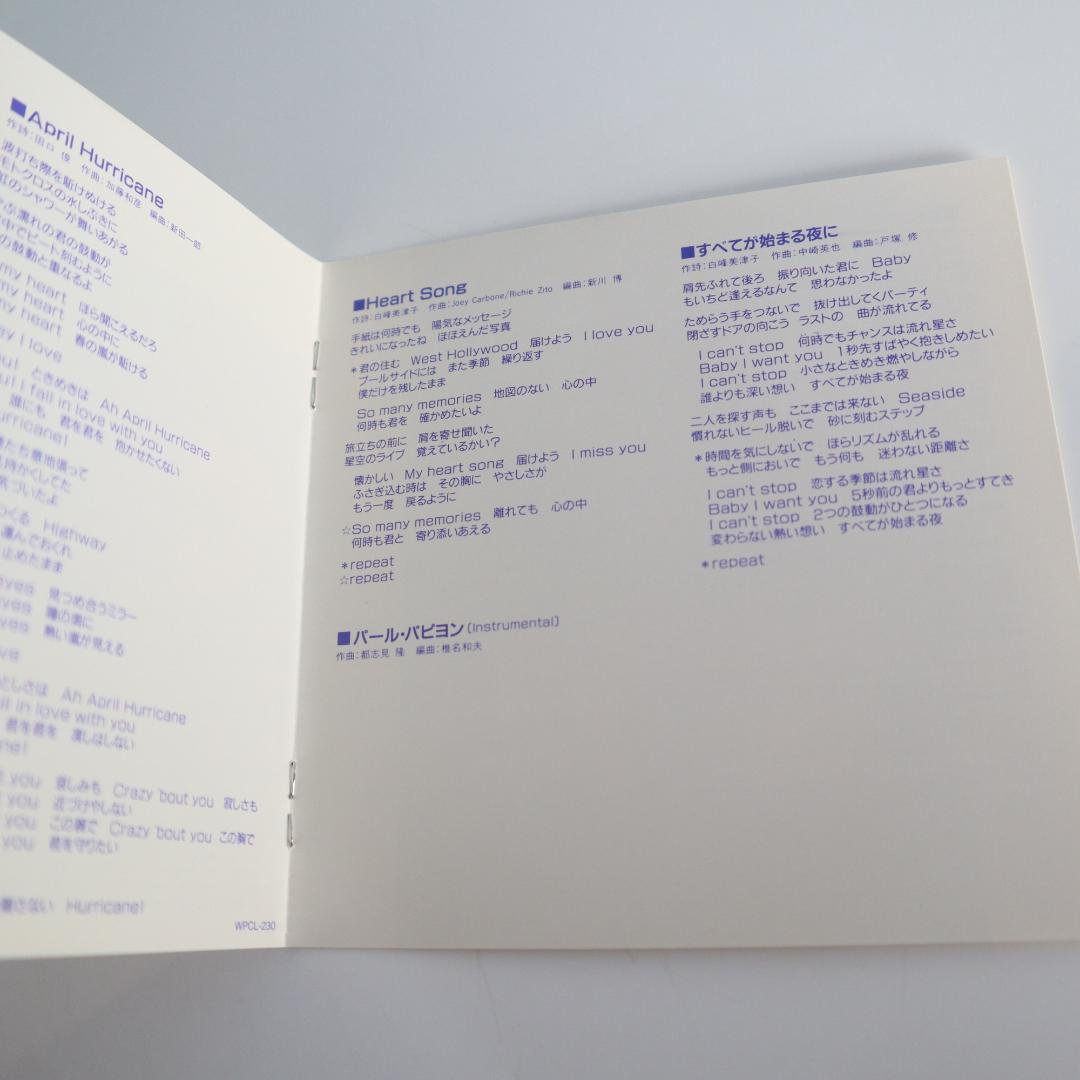 ■April Hurricane
作詩：田口 俊 作曲：加藤和彦 編曲：新田一郎
波打ち際を駆けぬける
モトクロスの水しぶきに
虹のシャワーが舞いあがる
ぶ濡れの君の鼓動が
中でビート刻むように
の鼓動と重なるよ
my heart ほら聞こえるだろ
my heart 心の中に
my heart 春の嵐が駆ける
I love
ときめきは Ah April Hurricane
I fall in love with you
誰にも 君を君を 抱かせたくない
Hurricane!
たち意地張って
気づいたよ
つくる Highway
運んでおくれ
止めたまま
eyes 見つめ合うミラー
eyes 瞳の奥に
eyes 熱い嵐が見える
としさは Ah April Hurricane
all in love with you
君を君を 漂しはしない
you 哀しみも Crazy 'bout you 寂しさも
you 近づけやしない
you この腕で Crazy 'bout you この胸で
you 君を守りたい
離さない Hurricane!
WPCL-230
■Heart Song
作詩：白峰美津子 作曲：Joey Carbone/Richie Zito 編曲：新川 博
手紙は何時でも 陽気なメッセージ
きれいになったね ほほえんだ写真
*君の住む West Hollywood 届けよう I love you
プールサイドには また季節 繰り返す
僕だけを残したまま
So many memories 地図のない 心の中
何時も君を 確かめたいよ
旅立ちの前に 肩を寄せ聞いた
星空のライブ 覚えているかい？
懐かしい My heart song 届けよう I miss you
ふさぎ込む時は その胸に やさしさが
もう一度 戻るように
☆So many memories 離れても 心の中
何時も君と 寄り添いあえる
*repeat
☆repeat
■パール・パピヨン〔Instrumental〕
作曲：都志見 隆 編曲：椎名和夫
■すべてが始まる夜に
作詩：白峰美津子 作曲：中崎英也 編曲：戸塚 修
肩先ふれて後ろ 振り向いた君に Baby
もいちど逢えるなんて 思わなかったよ
ためらう手をつないで 抜け出してくパーティ
閉ざすドアの向こう ラストの 曲が流れてる
I can't stop 何時でもチャンスは流れ星さ
Baby I want you 1秒先すばやく抱きしめたい
I can't stop 小さなときめき燃やしながら
誰よりも深い想い すべてが始まる夜
二人を探す声も ここまでは来ない Seaside
慣れないヒール脱いで 砂に刻むステップ
*時間を気にしないで ほらリズムが乱れる
もっと側においで もう何も 迷わない距離さ
I can't stop 恋する季節は流れ星さ
Baby I want you 5秒前の君よりもっとすてき
I can't stop 2つの鼓動がひとつになる
変わらない熱い想い すべてが始まる夜
*repeat